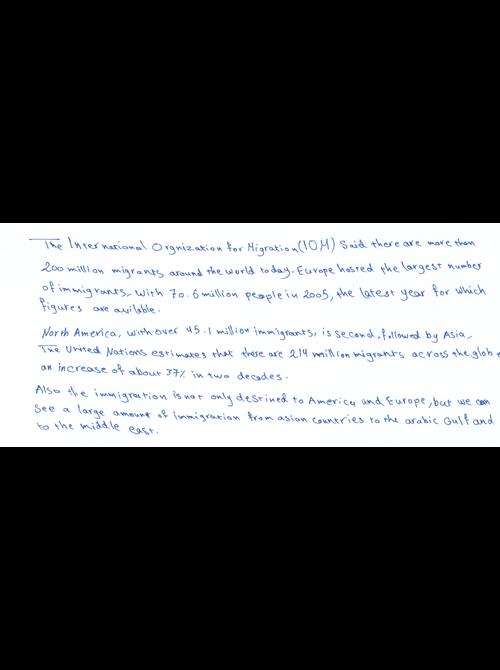 The International Orgnization for Migration(IOM) Said there are more than
200 million migrants around the world today. Europe hosted the largest number
of immigrants, with 70.6 million people in 2005, the latest year for which
figures are avilable.
North America, with over 45.1 million immigrants, is second, followed by Asia.
The United Nations estimates that there are 214 million migrants across the glob
an increase of about 37% in two decades.
Also the immigration is not only destined to America and Europe, but we can
see a large amount of immigration from asian countries to the arabic Gulf and
to the middle east.